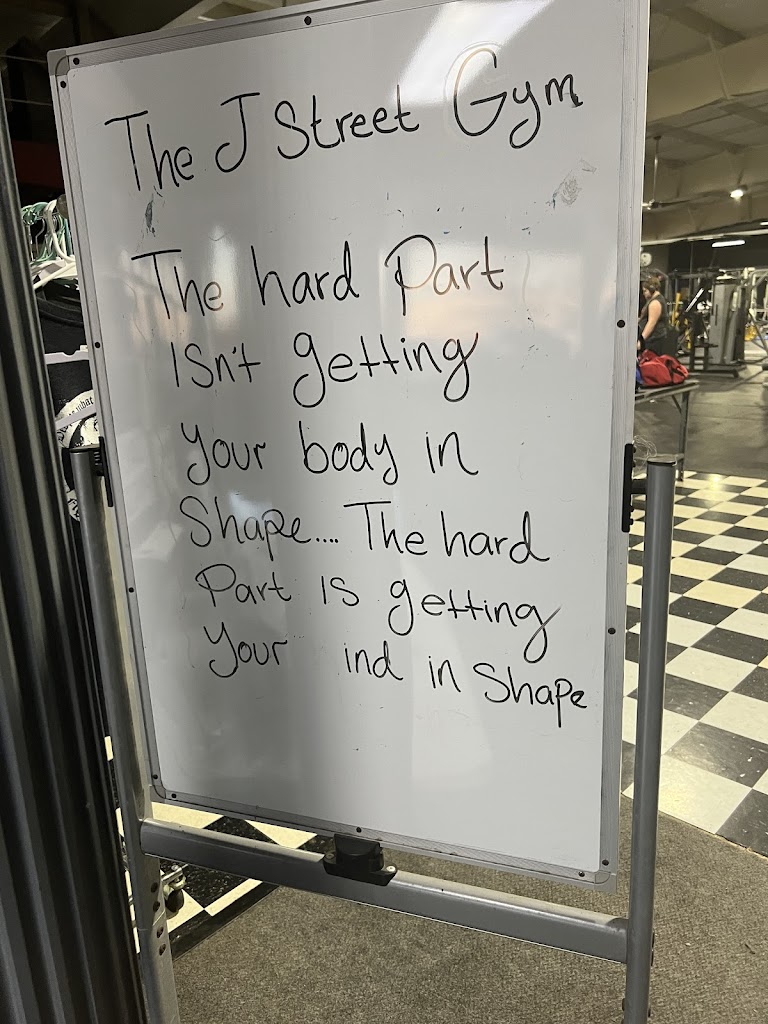 The J Street Gym
The hard Part
ISn't getting
your body in
Shape.... The hard
Part IS getting
your ind in Shape